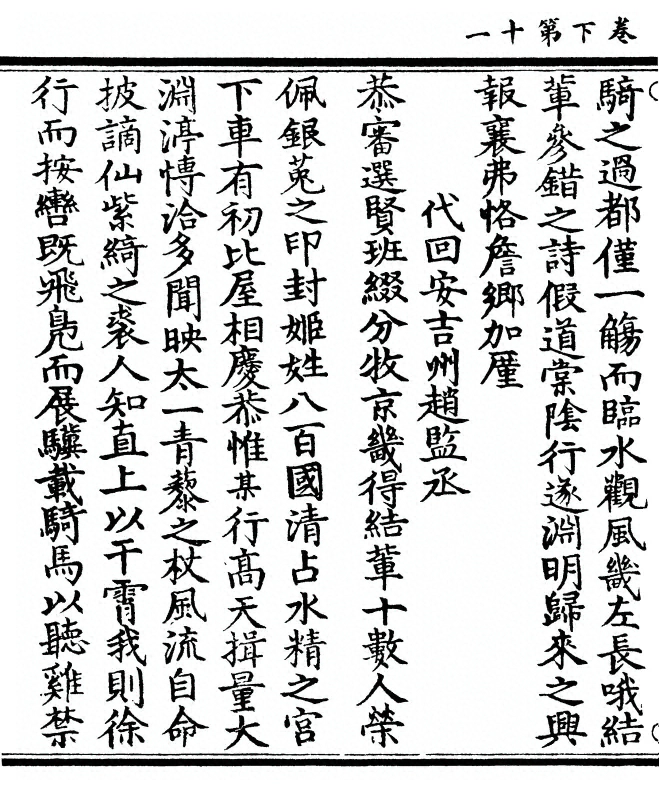 卷下第十一
騎之過都僅一觴而臨水觀風幾左長哦結
輩參錯之詩假道棠陰行遂淵明歸來之興
報襄弗恪詹鄉加厪
代回安吉州趙監丞
恭審選賢班綴分牧京畿得結輩十數人榮
佩銀菟之印封姬姓八百國清占水精之宮
下車有初比屋相慶恭惟某行高天揖量大
淵渟博洽多聞映太一青藜之杖風流自命
披謫仙紫綺之裘人知直上以干霄我則徐
行而按轡既飛鳧而展驥載騎馬以聽雞禁